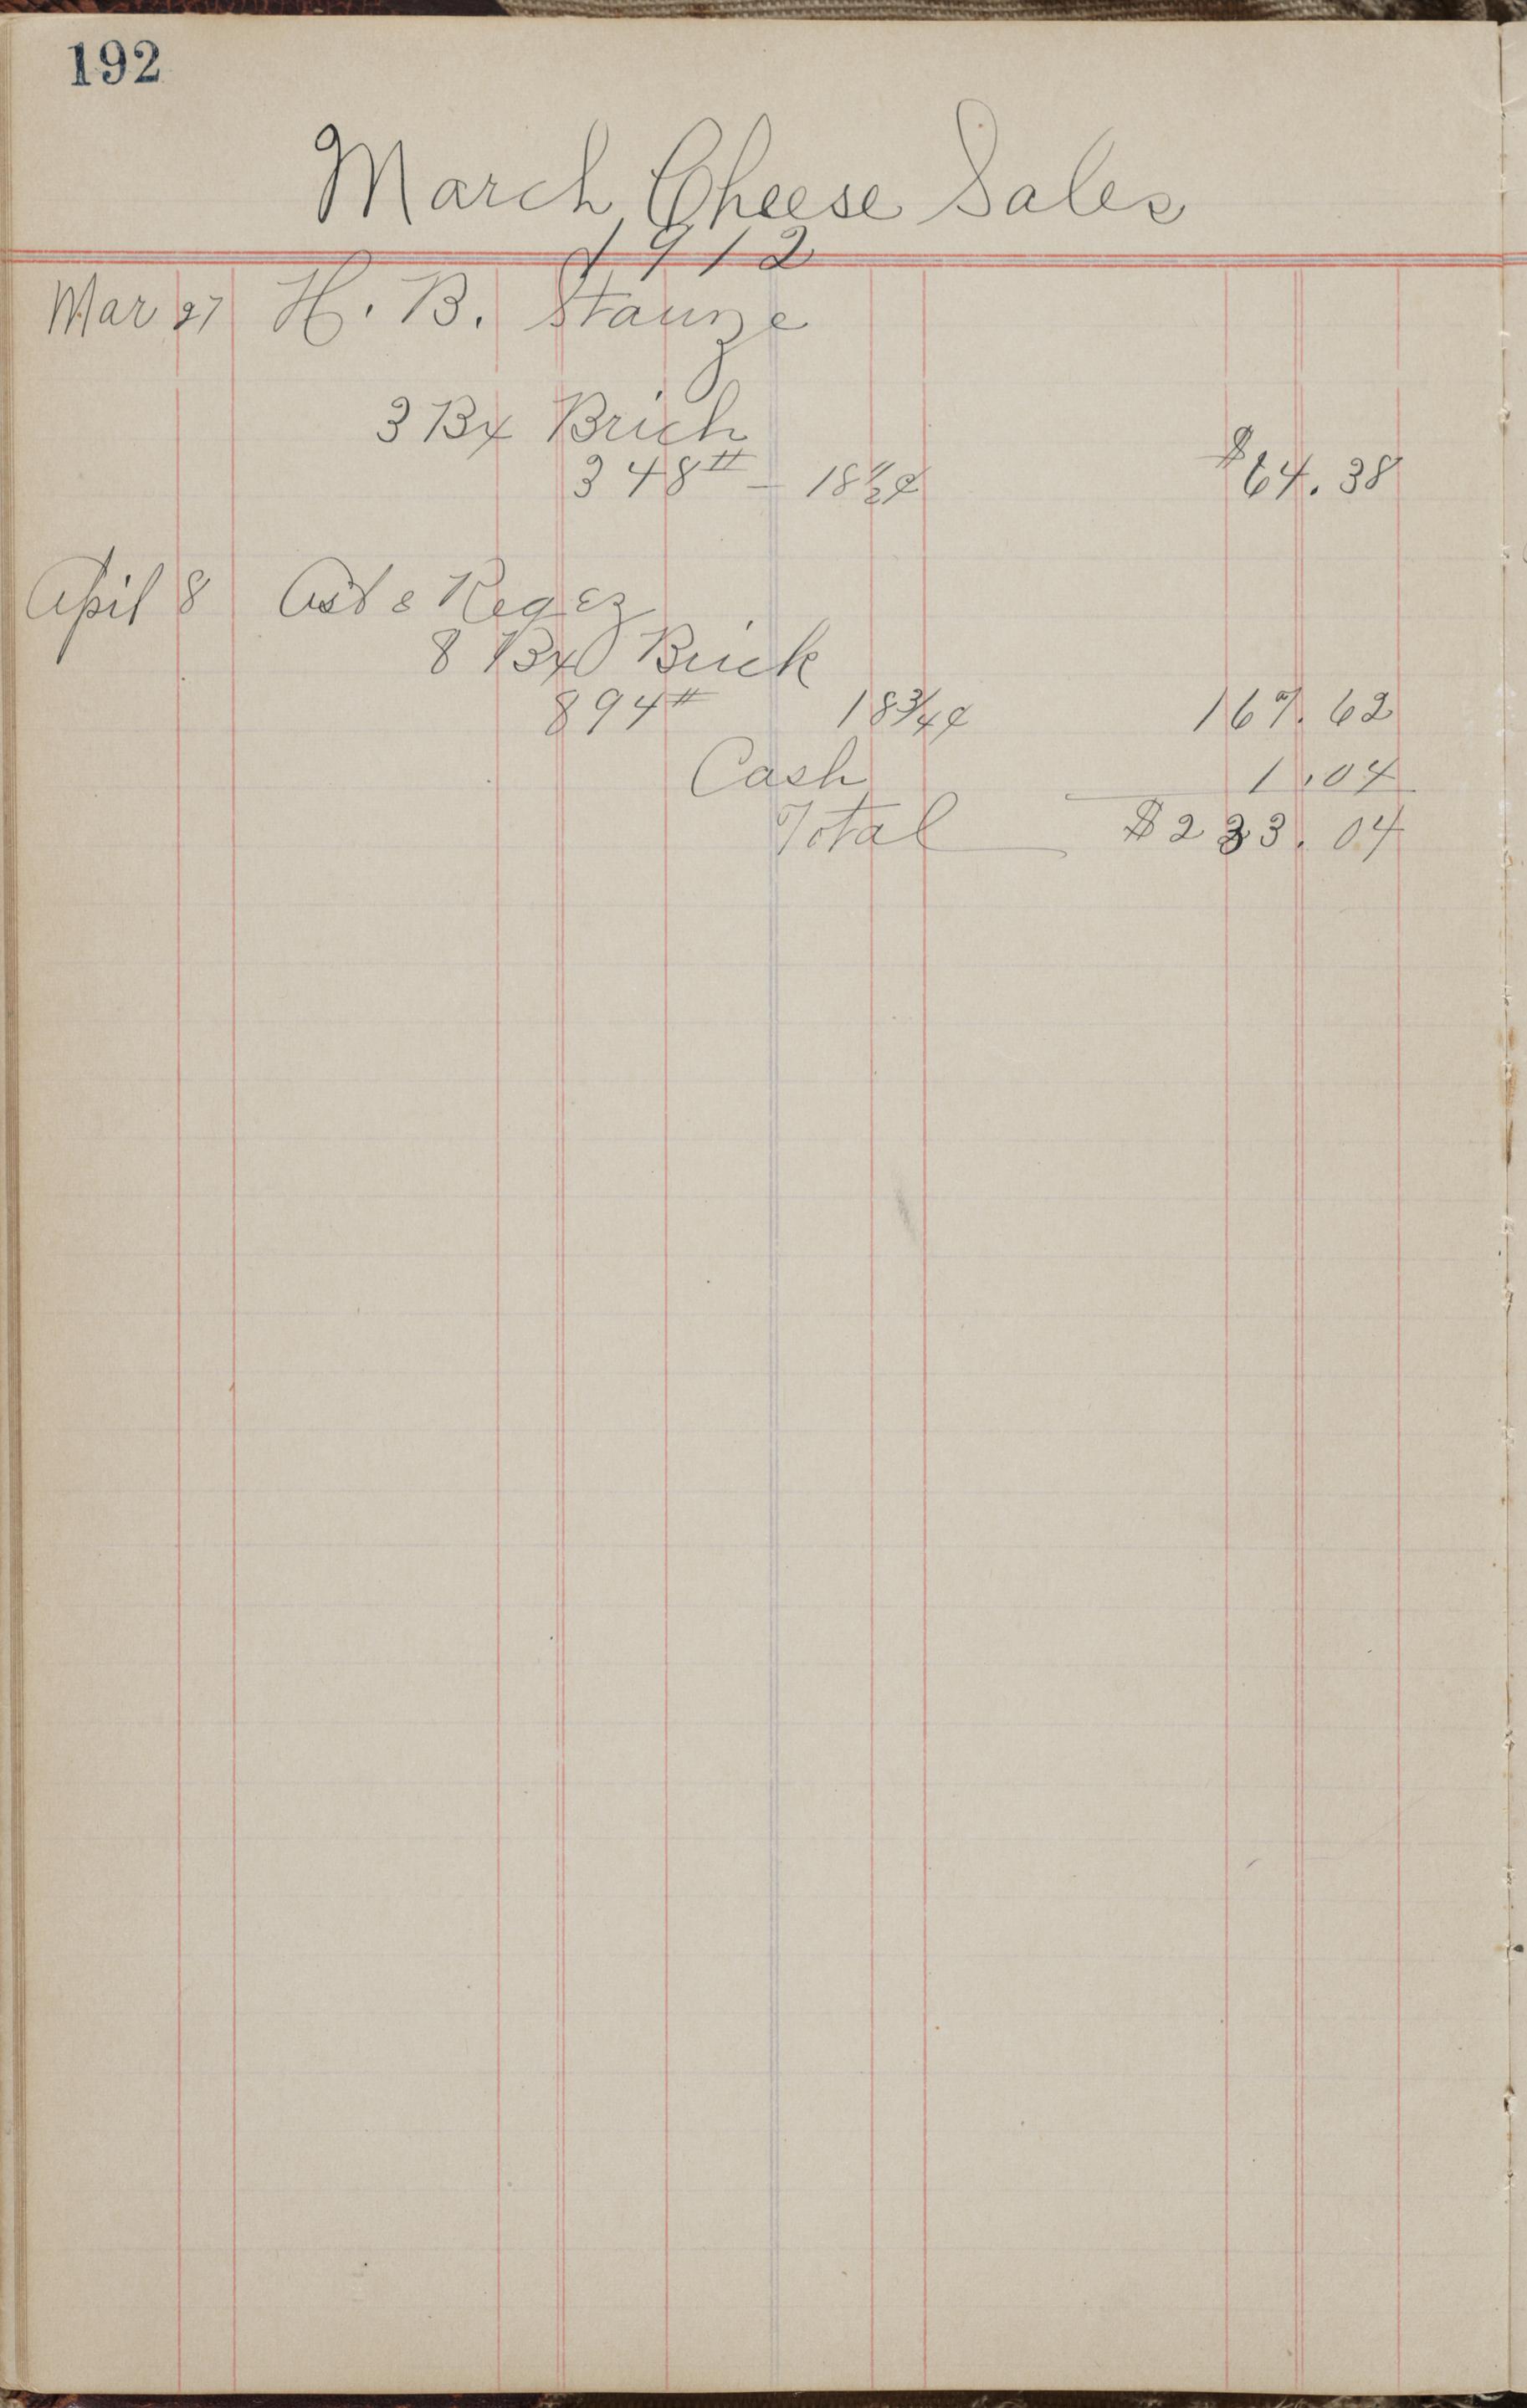 192
March Cheese Sales
1912
Mar 27 H. B. Stanze
3 Bx Brick
348# – 18 1/2¢ $64.38
April 8 Ast & Regez
8 Bx Brick
894# 18 3/4¢ 167.62
Cash 1.04
Total $233.04